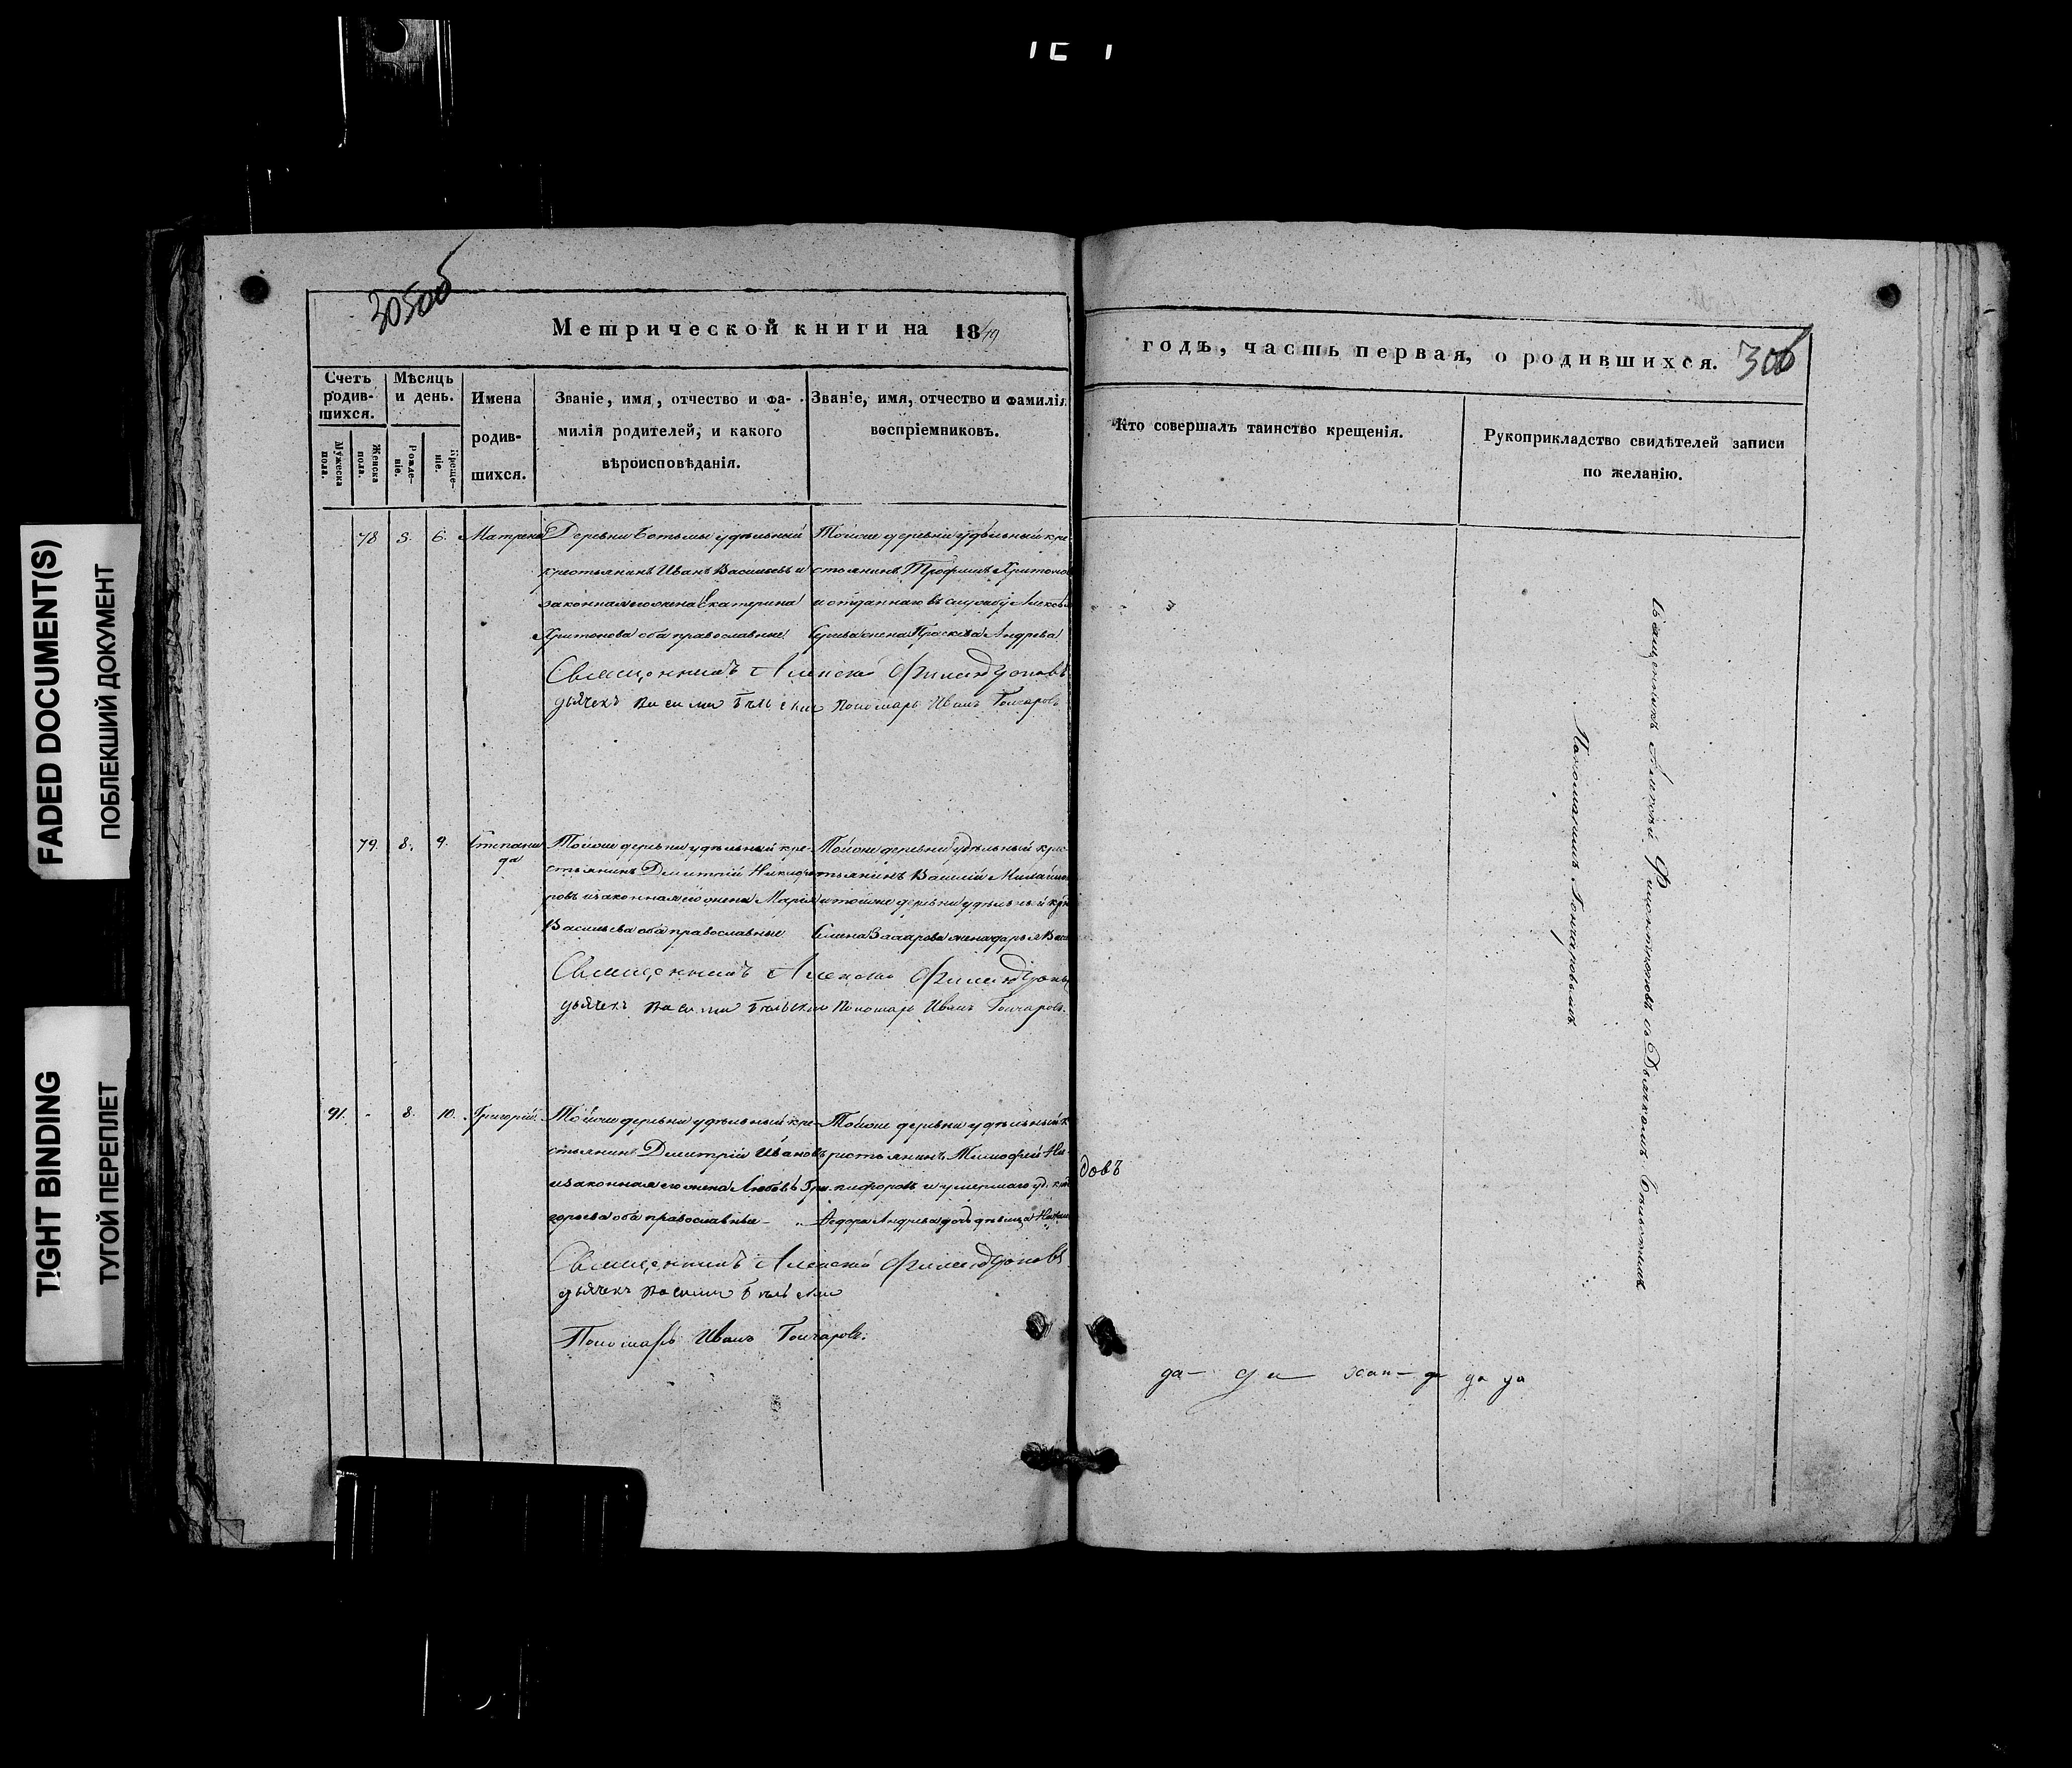 FADED DOCUMENT(S)
ПОБЛЕКШИЙ ДОКУМЕНТ
TIGHT BINDING
ТУГОЙ ПЕРЕПЛЕТ
305об
Метрической книги на 1849
годъ, часть первая, о родившихся.
306
Счетъ родив-шихся.
Мужеска пола.
Женска пола.
Мѣсяцъ и день.
Рожде-ніе.
Креще-ніе.
Имена
родив-
шихся.
Званіе, имя, отчество и фа-
милія родителей, и какого
вѣроисповѣданія.
Званіе, имя, отчество и фамилія
воспріемниковъ.
Кто совершалъ таинство крещенія.
Рукоприкладство свидѣтелей записи
по желанію.
78 5. 6. Матрена
Деревни Ботьмы удѣльный
крестьянинъ Иванъ Васильевъ и
законная его жена Екатерина
Харитонова оба православные
Тойже деревни удѣльный кре
стьянинъ Трофимъ Харитоно
и отданнаго въ службу
жена Праскева Андрева
Священникъ Алексей
дьячекъ Пономарь Иванъ Гончаровъ
79. 8. 9. Степани
да
Тойже деревни удѣльный кре-
стьянинъ Димитрій Никифо
ровъ и законная его жена Марія
Васильева оба православные
Тойже деревни удѣльный крес
тьянинъ Василій
и тойже деревни удѣльный кре
жена Дарья Васи
Священникъ Алексей
дьячекъ Пономарь Иванъ Гончаровъ.
91. - 8. 10. Григорій.
Тойже деревни удѣльный кре-
стьянинъ Димитрій Ивановъ
и законная его жена Любовь Гри-
горьева оба православные
Тойже деревни удѣльный к
рестьянинъ Тимофей Ни-
кифоровъ и умершаго уд. кре
Федора Андрева дочь дѣвица
Священникъ Алексей
дьячекъ
Пономарь Иванъ Гончаровъ.
довъ
Священникъ Алексѣй съ Дьячкомъ
Пономаримъ Гончаровымъ
да да